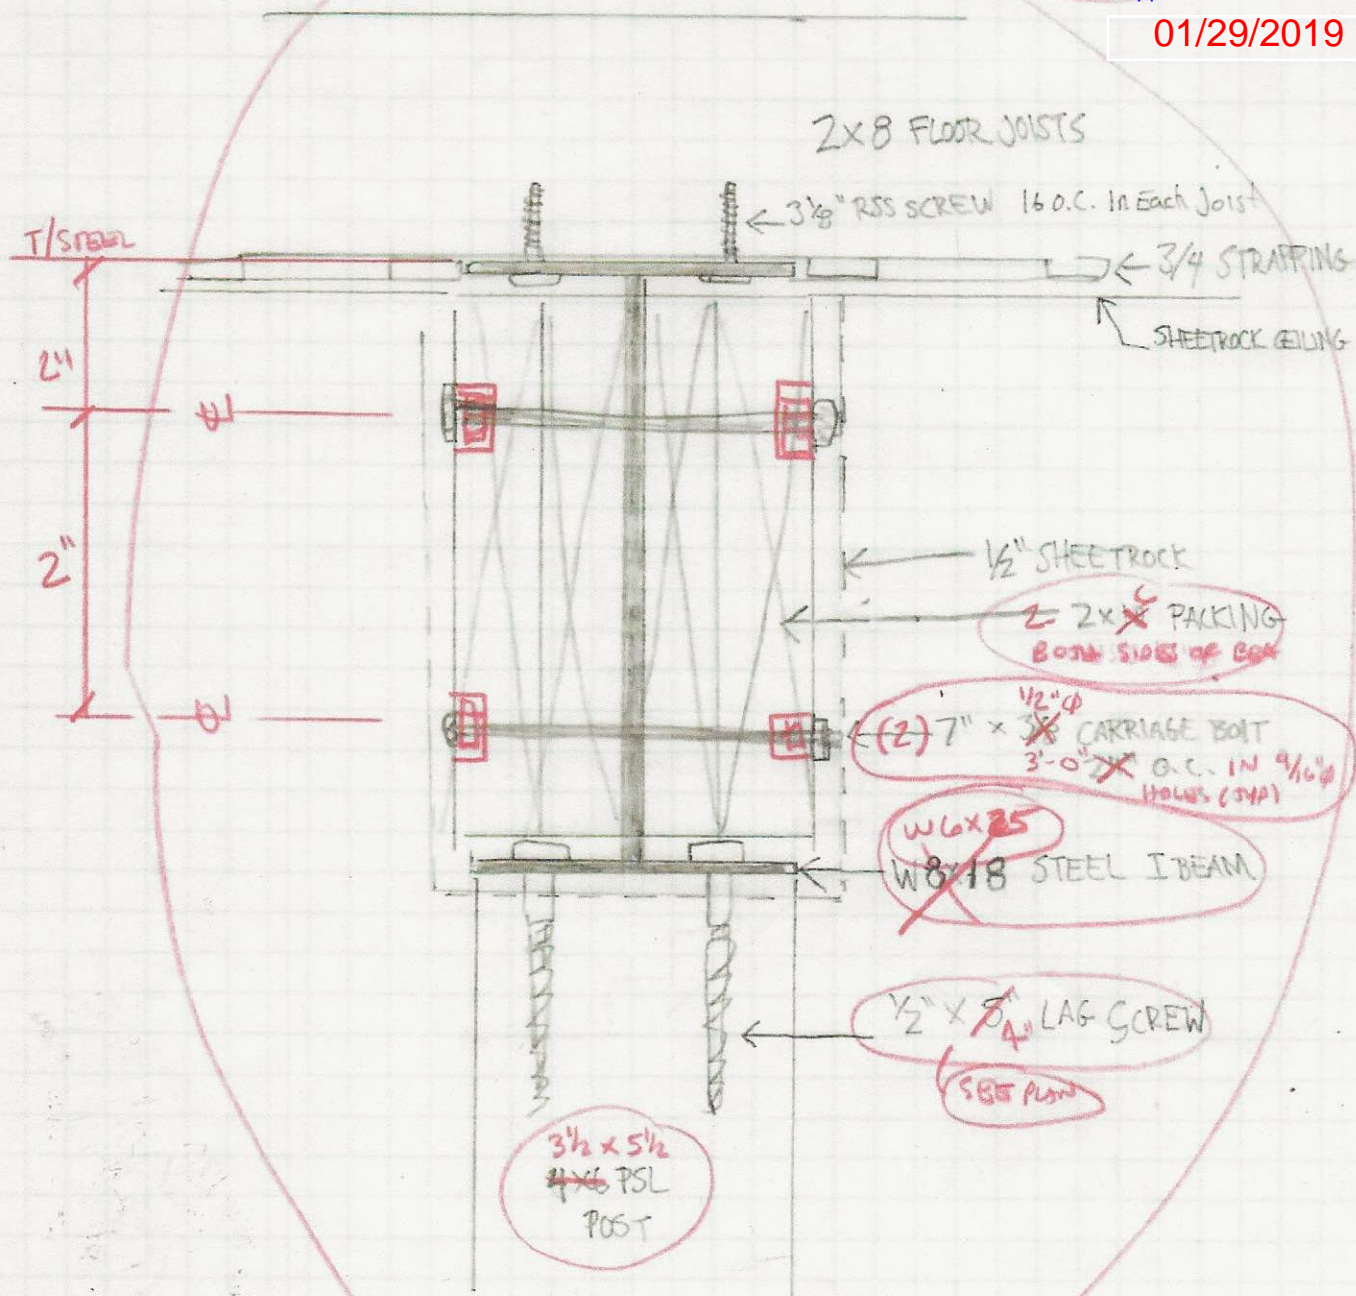 01/29/2019
2X8 FLOOR JOISTS
3 1/8" RSS SCREW 16 O.C. In Each Joist
T/STEEL
3/4 STRAPPING
SHEETROCK CEILING
2"
℄
2"
1/2" SHEETROCK
2 2x6 PACKING
BOTH SIDES OF
℄
1/2"φ
(2) 7" x CARRIAGE BOLT
3'-0" O.C. IN 9/16"φ
HOLES (TYP)
W6x25
W8x18 STEEL I BEAM
1/2" X 5" 4" LAG SCREW
SEE PLAN
3 1/2 x 5 1/2
4x6 PSL
POST